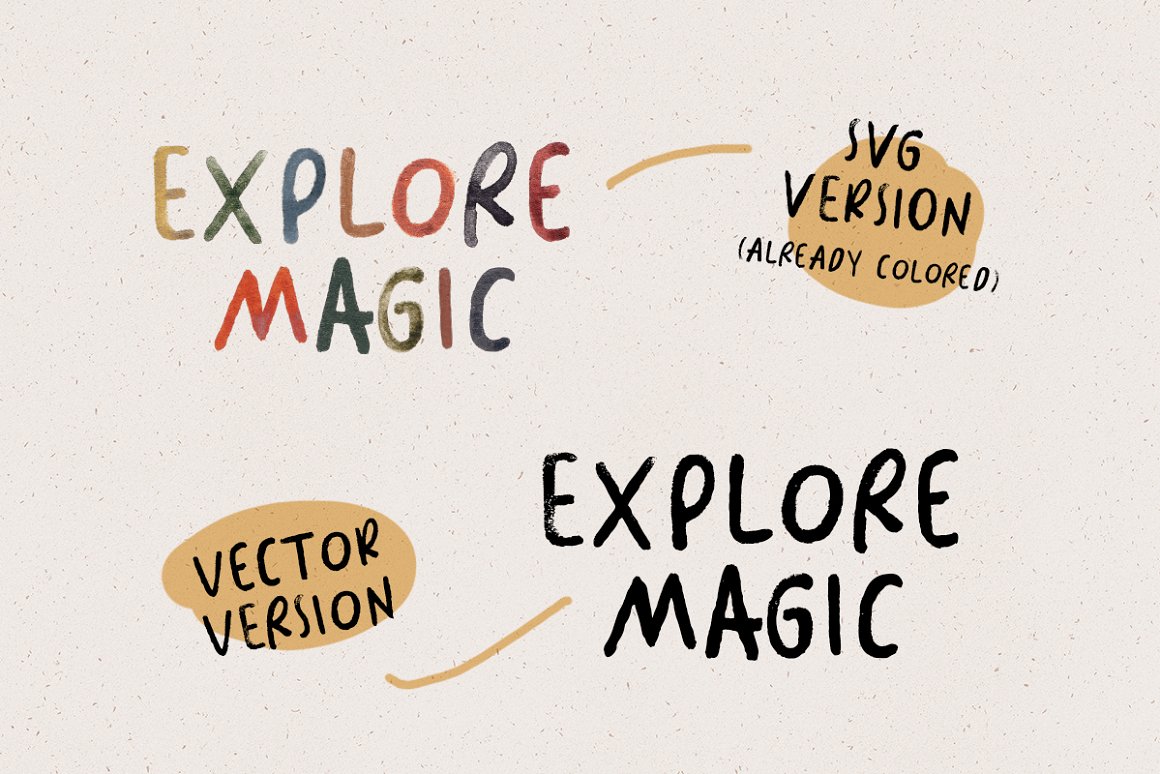 EXPLORE
MAGIC
SVG
VERSION
(ALREADY COLORED)
EXPLORE
MAGIC
VECTOR
VERSION